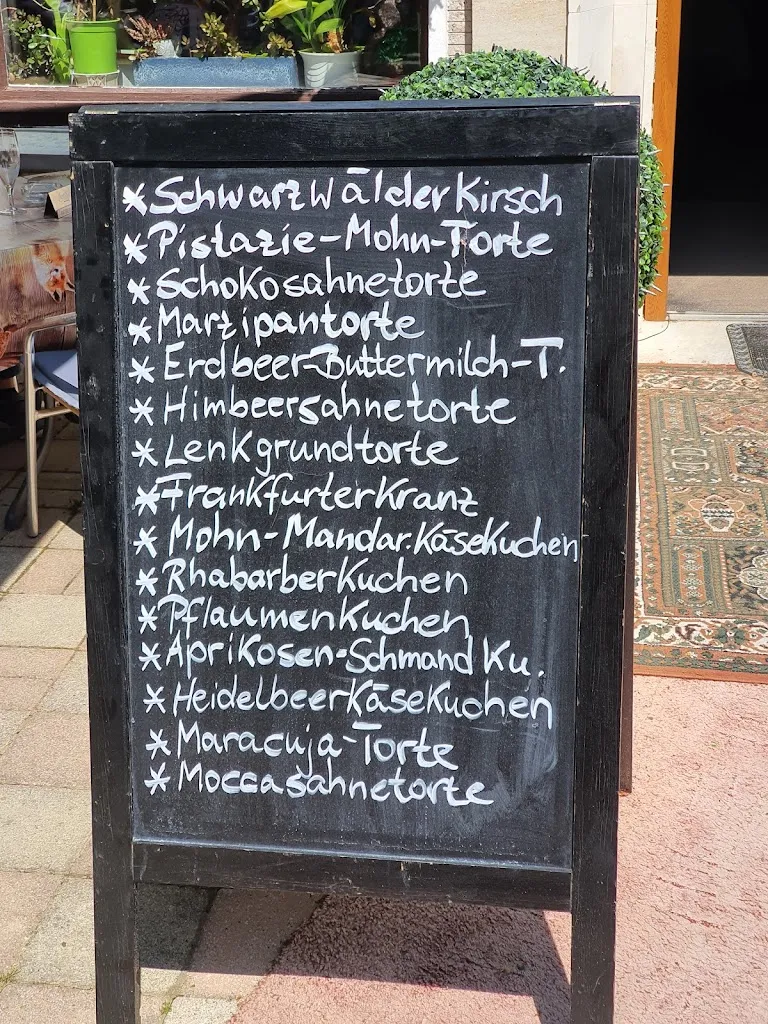 * Schwarzwälder Kirsch
* Pistazie-Mohn-Torte
* Schokosahnetorte
* Marzipantorte
* Erdbeer-Buttermilch-T.
* Himbeersahnetorte
* Lenkgrundtorte
* Frankfurter Kranz
* Mohn-Mandar. Käsekuchen
* Rhabarberkuchen
* Pflaumenkuchen
* Aprikosen-Schmand Ku.
* Heidelbeerkäsekuchen
* Maracuja-Torte
* Moccasahnetorte